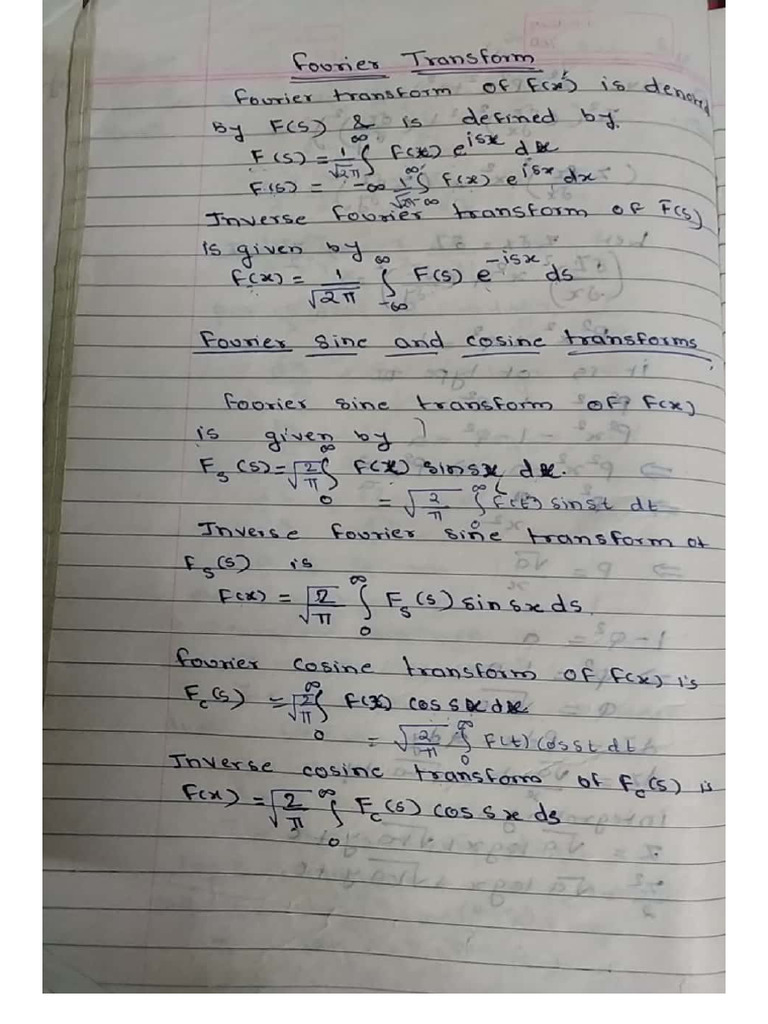 Fourier Transform
Fourier transform of F(x) is denoted
By F(s) & is defined by.
F(s) = 1/√2π ∫_{-∞}^{∞} F(x) e^{isx} dx
F(s) = 1/√2π ∫_{-∞}^{∞} F(x) e^{isx} dx
Inverse Fourier transform of F(s)
is given by
F(x) = 1/√2π ∫_{-∞}^{∞} F(s) e^{-isx} ds
Fourier sine and cosine transforms.
Foorier sine transform of F(x)
is given by
F_s(s) = √2/π ∫_0^∞ F(x) sinsx dx.
= √2/π ∫_0^∞ F(t) sinst dt
Inverse Fourier sine transform of
F_s(s) is
F(x) = √2/π ∫_0^∞ F_s(s) sinsx ds.
Fourier cosine transform of F(x) is
F_c(s) = √2/π ∫_0^∞ F(x) cos sx dx
= √2/π ∫_0^∞ F(t) cosst dt
Inverse cosine transform of F_c(s) is
F(x) = √2/π ∫_0^∞ F_c(s) cos sx ds